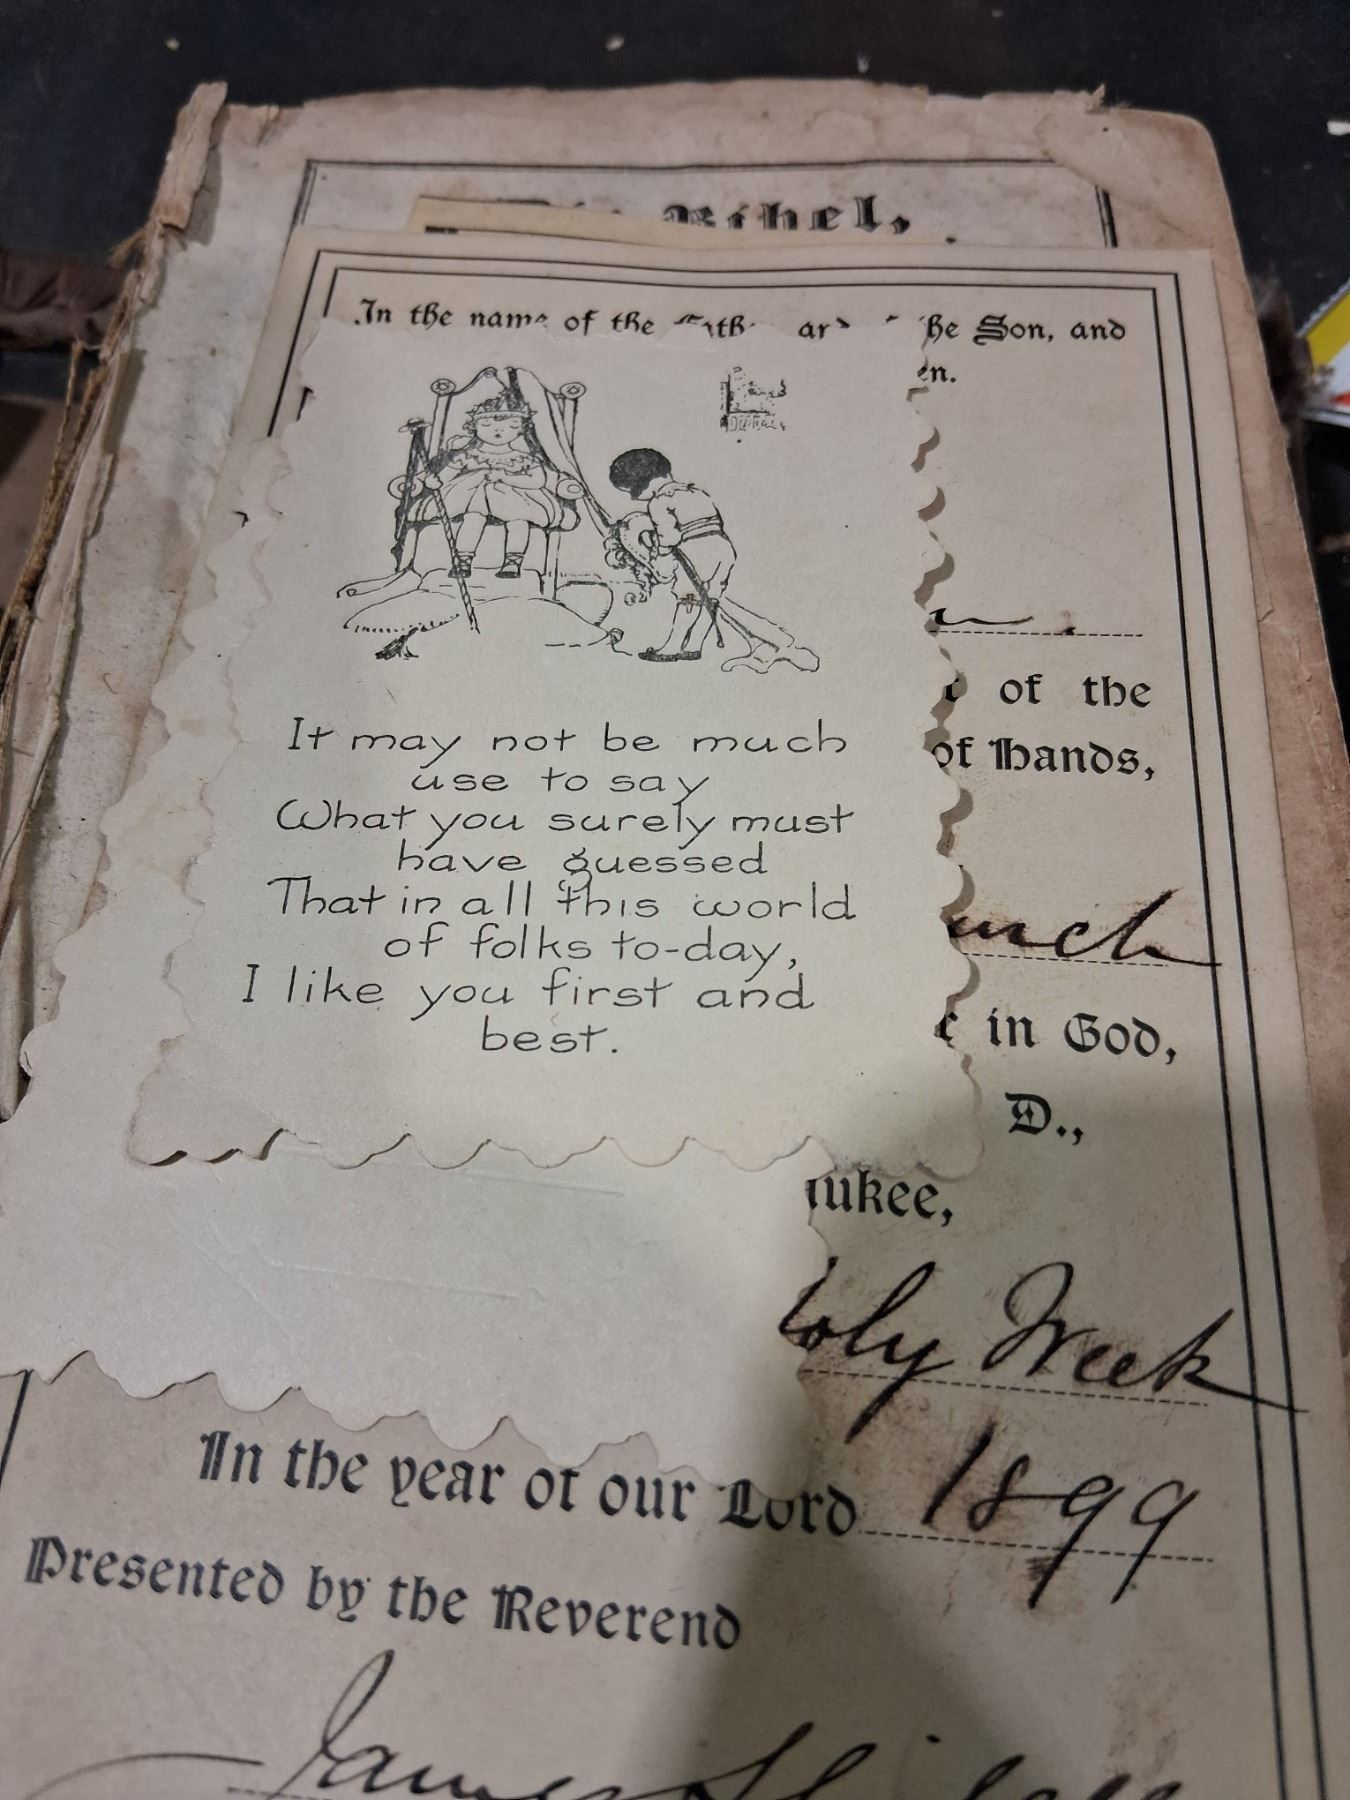 Bibel,
In the name of the ar he Son, and
en.
It may not be much
use to say
What you surely must
have guessed
That in all this world
of folks to-day,
I like you first and
best.
of the
of Hands,
in God,
D.,
ukee,
Holy Week
In the year of our Lord 1899
Presented by the Reverend
James